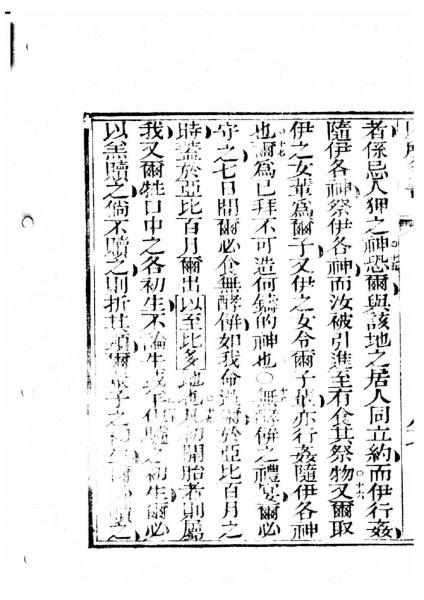 者係忌人狎之神恐爾與該地之居人同立約而伊行姦
隨伊各神祭伊各神而汝被引進至有食其祭物○十六又爾取
伊之女輩爲爾子又伊之女令爾子輩亦行姦隨伊各神
也○十七爾爲己拜不可造何鑄的神也○無酵餅之禮宴爾必
守之七日間爾必食無酵餅如我命過爾於亞比百月之
時蓋於亞比百月爾出以至比多地也凡初開胎者則屬
我又爾牲口中之各初生不論牛或羊但驢之初生爾必
以羔贖之倘不贖之則折其頸爾衆子之初生